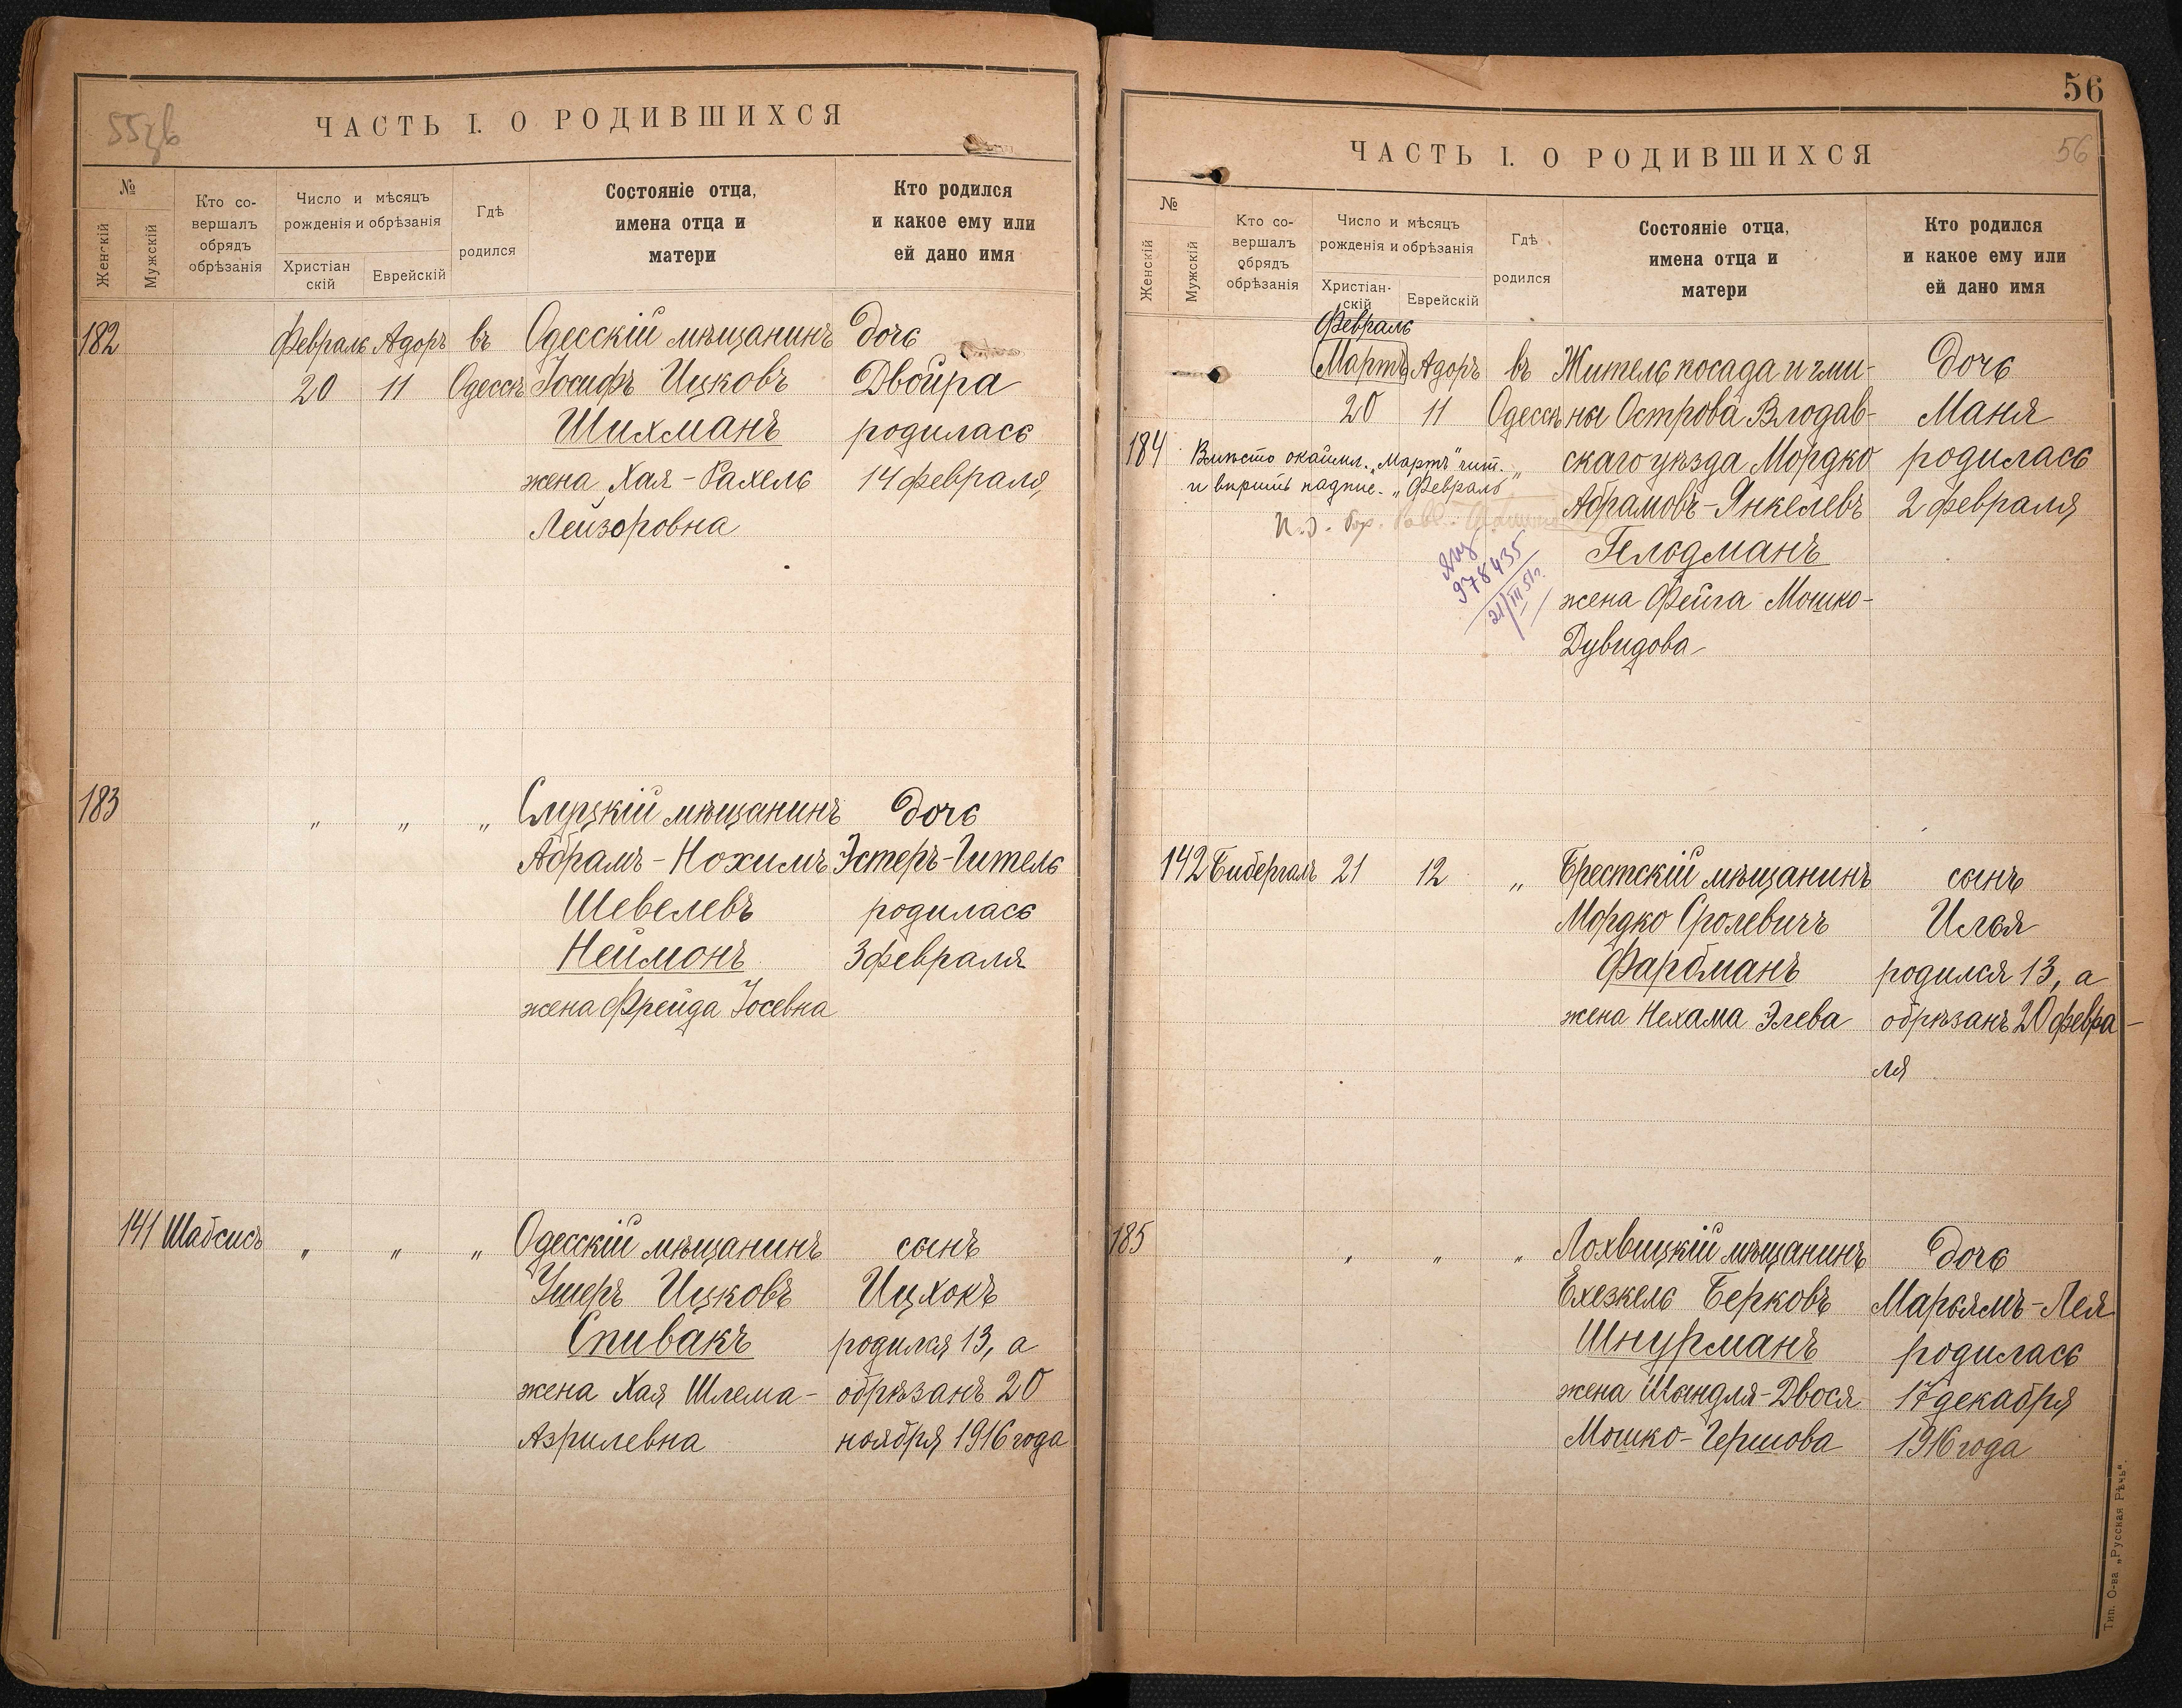 55 зв
ЧАСТЬ I. О РОДИВШИХСЯ
№
Женскій
Мужскій
Кто со-
вершалъ
обрядъ
обрѣзанія
Число и мѣсяцъ
рожденія и обрѣзанія
Христіан
скій
Еврейскій
Гдѣ
родился
Состояніе отца,
имена отца и
матери
Кто родился
и какое ему или
ей дано имя
182 Февраль Адоръ въ Одесскій мѣщанинъ дочь
20 11 Одессѣ Іосифъ Ицковъ Двойра
Шихманъ родилась
жена Хая-Рахель 14 февраля
Лейзоровна
183 „ „ „ Слуцкій мѣщанинъ дочь
Абрамъ-Нохимъ Эстеръ-Гитель
Шевелевъ родилась
Неймонъ 3 февраля
жена Фрейда Іосевна
141 Шабсисъ „ „ „ Одесскій мѣщанинъ сынъ
Ушеръ Ицковъ Ицхокъ
Спивакъ родился 13, а
жена Хая Шлема- обрѣзанъ 20
Азрилевна ноября 1916 года
56
ЧАСТЬ I. О РОДИВШИХСЯ
56
№
Женскій
Мужскій
Кто со-
вершалъ
обрядъ
обрѣзанія
Число и мѣсяцъ
рожденія и обрѣзанія
Христіан-
скій
Еврейскій
Гдѣ
родился
Состояніе отца,
имена отца и
матери
Кто родился
и какое ему или
ей дано имя
Февраль
Мартъ Адоръ въ Житель посада и гми- дочь
20 11 Одессѣ ны Острова Влодав- Маня
184 скаго уѣзда Мордко родилась
Вмѣсто окаймл. „Мартъ" чит.
и вѣрить надпис. „Февраль"
Абрамовъ-Янкелевъ 2 февраля
И. д. Гор.
978435
21/III 51г.
Гельдманъ
жена Фейга Мошко-
Дувидова
142 Бибергалъ 21 12 „ Брестскій мѣщанинъ сынъ
Мордко Сролевичъ Илья
Фарбманъ родился 13, а
жена Нехама Элева обрѣзанъ 20 февра-
ля
185 „ „ „ Лохвицкій мѣщанинъ дочь
Ехезкель Берковъ Марьямъ-Лея
Шнурманъ родилась
жена Шындля-Двося 17 декабря
Мошко-Гершова 1916 года
Тип. О-ва „Русская Рѣчь".